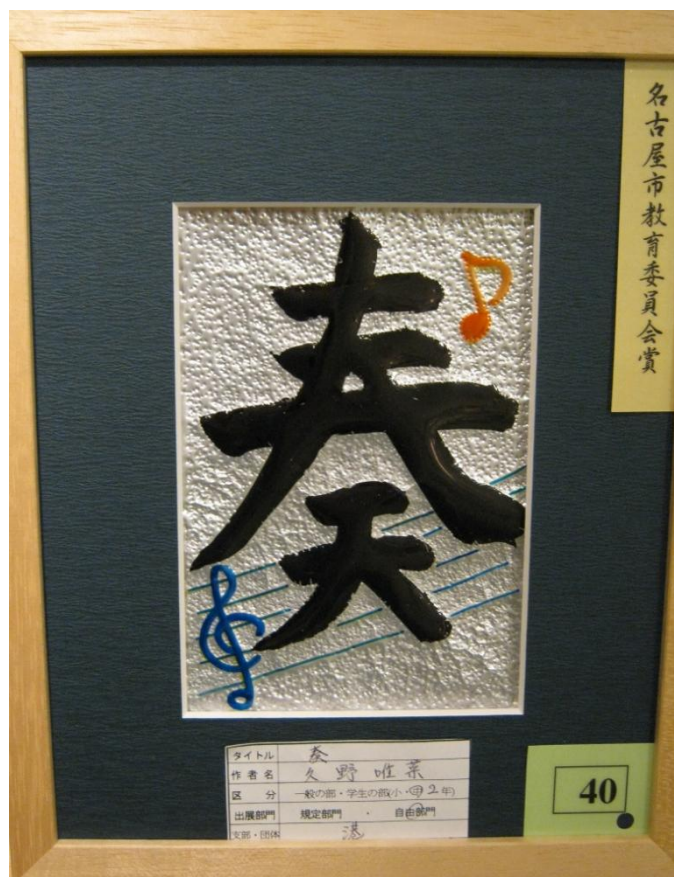 名古屋市教育委員会賞
奏
タイトル 奏
作者名 久野唯菜
区分 一般の部・学生の部(小・中2年)
出展部門 規定部門・自由部門
支部・団体 港
40